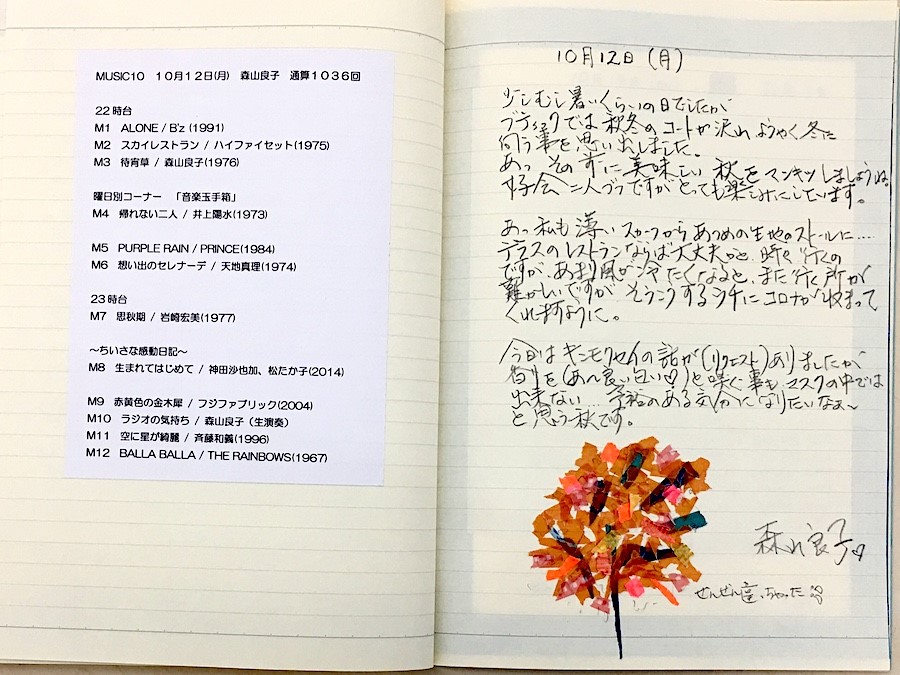 MUSIC10 10月12日(月) 森山良子 通算1036回
22時台
M1 ALONE / B'z (1991)
M2 スカイレストラン / ハイファイセット(1975)
M3 待宵草 / 森山良子(1976)
曜日別コーナー 「音楽玉手箱」
M4 帰れない二人 / 井上陽水(1973)
M5 PURPLE RAIN / PRINCE(1984)
M6 想い出のセレナーデ / 天地真理(1974)
23時台
M7 思秋期 / 岩崎宏美(1977)
～ちいさな感動日記～
M8 生まれてはじめて / 神田沙也加、松たか子(2014)
M9 赤黄色の金木犀 / フジファブリック(2004)
M10 ラジオの気持ち / 森山良子（生演奏）
M11 空に星が綺麗 / 斉藤和義(1996)
M12 BALLA BALLA / THE RAINBOWS(1967)
10月12日（月）
少しむし暑いくらいの日でしたが
ブティックでは秋冬のコートが沢れ ようやく冬に
向う事を思い出しました。
あっ その前に美味しい秋をマンキンしましょうね。
二人 ですが とっても楽しみにしています。
あっ私も薄いスカーフからあつめの生地のストールに....
テラスのレストランならば大丈夫かと、時々行くの
ですが、あまり風が冷たくなると、また行く所が
難かしいですが そうこうするウチにコロナが収まって
くれますように。
今日はキンモクセイの話が（リクエスト）ありましたが
香りを（あ〜良い匂い♡）と 事も、マスクの中では
出来ない... 余裕のある になりたいなぁ〜
と思う秋です。
森山良子♡
ぜんぜん ちゃった